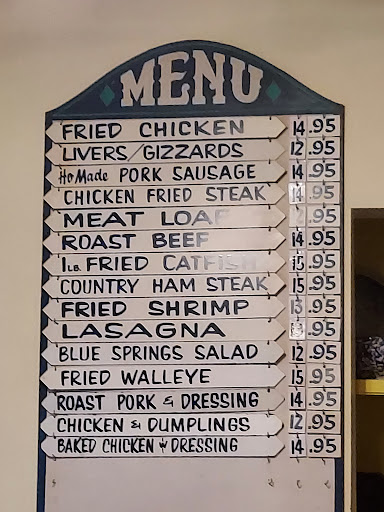 MENU
FRIED CHICKEN 14.95
LIVERS/GIZZARDS 12.95
HoMade PORK SAUSAGE 14.95
CHICKEN FRIED STEAK 14.95
MEAT LOAF .95
ROAST BEEF 14.95
1 LB. FRIED CATFISH 15.95
COUNTRY HAM STEAK 15.95
FRIED SHRIMP 13.95
LASAGNA .95
BLUE SPRINGS SALAD 12.95
FRIED WALLEYE 15.95
ROAST PORK & DRESSING 14.95
CHICKEN & DUMPLINGS 12.95
BAKED CHICKEN & DRESSING 14.95